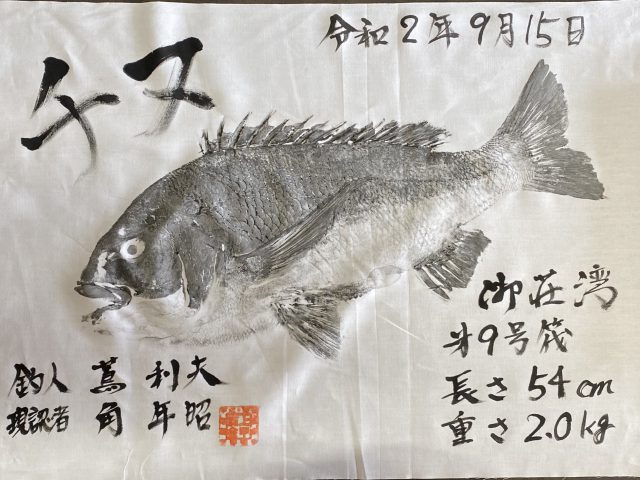 令和2年9月15日
チヌ
御荘湾
9号筏
長さ54cm
重さ2.0kg
釣人 蔦 利夫
現認者 角 年昭